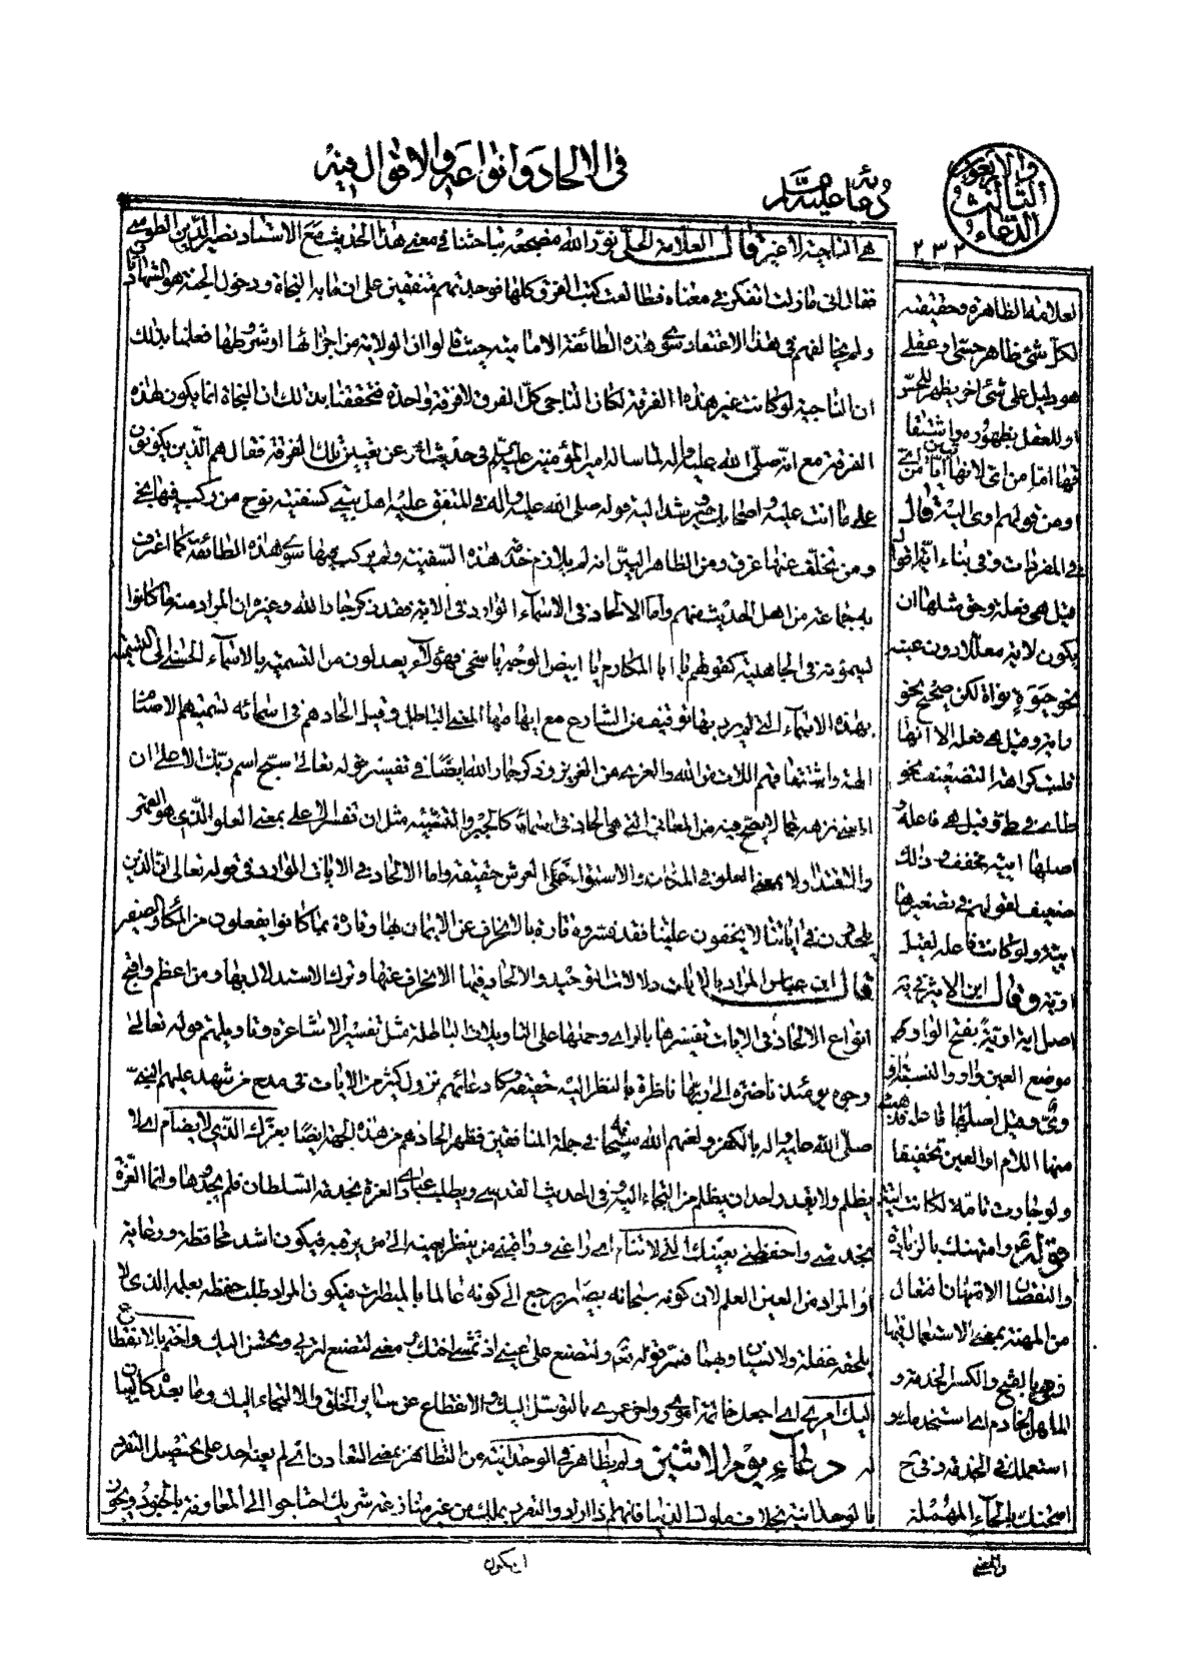 والاربعون
الثالث
الدعاء
دعائه عليه السلام
في الالحاد وانواعه والاقوال فيه
٢٣٢
هي الناجية لا غير قال العلامة الحلي نور الله مضجعه تباحثنا في معنى هذا الحديث مع الاستاد نصير الدين الطوسي
فقال اني ما زلت اتفكر في معناه فطالعت كتب الفرق كلها فوجدتهم متفقين على ان غاية النجاة ودخول الجنة هو الشهادتان
ولم يخالفهم في هذا الاعتقاد سوى هذه الطائفة الامامية حيث قالوا ان الولاية من اجزائها او شروطها فعلمنا بذلك
ان الناجية لو كانت غير هذه الفرقة لكان الناجي كل الفرق لا فرقة واحدة فتحققنا بذلك ان النجاة انما يكون لهذه
الفرقة مع انه صلى الله عليه واله لما ساله امير المؤمنين عليه السلم في حديث اخر عن تعيين تلك الفرقة فقال هم الذين يكونون
على ما انت عليه واصحابك ويرشد اليه قوله صلى الله عليه واله في المتفق عليه اهل بيتي كسفينة نوح من ركب فيها نجى
ومن تخلف عنها غرق ومن الظاهر البين انه لم يلازم هذه السفينة ولم يركب فيها سوى هذه الطائفة كما اعترف
به جماعة من اهل الحديث منهم واما الالحاد في الاسماء الوارد في الاية فقد ذكر جار الله وغيره ان المراد منه ما كانوا
يسمونه في الجاهلية كقولهم يا ابا المكارم يا ابيض الوجه يا سخي فهؤلاء يعدلون من التسمية بالاسماء الحسنى الى التسمية
بهذه الاسماء التي لم يرد بها توقيف من الشارع مع ايهامها المعنى الباطل وقيل الحادهم في اسمائه تسميتهم الاصنام
الهة واشتقاقهم اللات من الله والعزى من العزيز وذكر جار الله ايضا في تفسير قوله تعالى سبح اسم ربك الاعلى ان
المعنى نزهه عما لا يصح فيه من المعاني التي هي الحاد في اسمائه كالجبر والتشبيه مثل ان تفسر الاعلى بمعنى العلو الذي هو القهر
والاقتدار لا بمعنى العلو في المكان والاستواء على العرش حقيقة واما الالحاد في الايات الوارد في قوله تعالى ان الذين
يلحدون في اياتنا لا يخفون علينا فقد فسروه تارة بالانحراف عن الايمان بها وتارة بما كانوا يفعلون من المكاء والصفير
قال ابن عباس المراد بالايات دلالات التوحيد والالحاد فيها الانحراف عنها وترك الاستدلال بها ومن اعظم واقبح
انواع الالحاد في الايات تفسيرها بالراي وحملها على التاويلات الباطلة مثل تفسير الاشاعرة وتاويلهم قوله تعالى
وجوه يومئذ ناضرة الى ربها ناظرة بالنظر اليه حقيقة وكادعائهم نزول كثير من الايات في مدح من شهد عليهم النبي
صلى الله عليه واله بالكفر ولعنهم الله سبحانه في جملة المنافقين فظهر الحادهم من هذه الجهة ايضا بعزك الذي لا يضام اي لا
يظلم ولا يقدر احد ان يظلم من التجاء اليه وفي الحديث القدسي ويطلب عبادي العزة بخدمة السلطان فلم يجدوها وانما العزة
بخدمتي واحفظني بعينك التي لا تنام اي راعني وواظبني من ينظر بعينه الى من يرقبه فيكون اشد محافظة ورعاية
او المراد من العين العلم لان كونه سبحانه بصيرا يرجع الى كونه عالما بالمبصرات فيكون المراد طلب حفظه بعلمه الذي لا
يلحقه غفلة ولا نسيان وبهما فسر قوله تعالى ولتصنع على عيني اذ تمشي اختك بمعنى لتصنع لتربى ويحسن اليك واختم بالانقطاع
اليك امري اي اجعل خاتمة اموري واخر عمري بالتوسل اليك والانقطاع عن سائر الخلق والالتجاء اليك وما بعده كالبيان
له دعاء يوم الاثنين ولم يظاهر في الوحدانية من التظاهر بمعنى التعاون اي لم يعنه احد على تحصيل التفرد
بالوحدانية بخلاف ملوك الدنيا فانهم اذا ارادوا التفرد بملك من غير منازعة شريك احتاجوا الى المعاونة بالجنود ويجوز
ان يكون
العلامة الظاهرة وحقيقته
لكل شئ ظاهر حسي او عقلي
هو دليل على شئ اخر يظهر للحس
او للعقل بظهوره واشتقا
قها اما من اي لانها تبين ايا من اي
او من قولهم اوى اليه قال
في المفردات وفي بناء اية اقوال
قيل هي فعلة وحق مثلها ان
يكون لامه معللا دون عينه
نحو حيوة ونواة لكن صحح نحو
راية وقيل هي فعلة الا انها
قلبت كراهة التضعيف نحو
طائي في طي وقيل هي فاعلة و
اصلها ايية فخفف وذلك
ضعيف لقولهم في تصغيرها
اييه ولو كانت فاعلة لقيل
اوية وقال ابن الاثير في يه
اصل اية اوية بفتح الواو و
موضع العين واو والنسبة اليه
ووي وقيل اصلها فاعلة فذهبت
منها اللام او العين تخفيفا
ولو جاءت تامة لكانت ايية
قوله وامتهنك بالزيادة
والنقصان الامتهان افتعال
من المهنة بمعنى الاستعمال فيها
فهي بالفتح والكسر الخدمة و
الماهن الخادم اي استخدمك و
استعملك في الخدمة وفي ح
امتحنك بالحاء المهملة
والمعنى